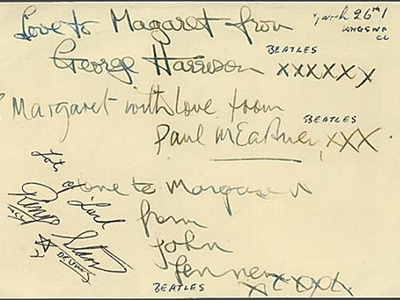 Love to Magaret from
George Harrison xxxxxx
BEATLES
March 26th
CL
Margaret with love from
BEATLES
Paul McCartney, xxx
Lots of Luck
Ringo Starr
love to Margaret
from
John
Lennon xxxx
BEATLES